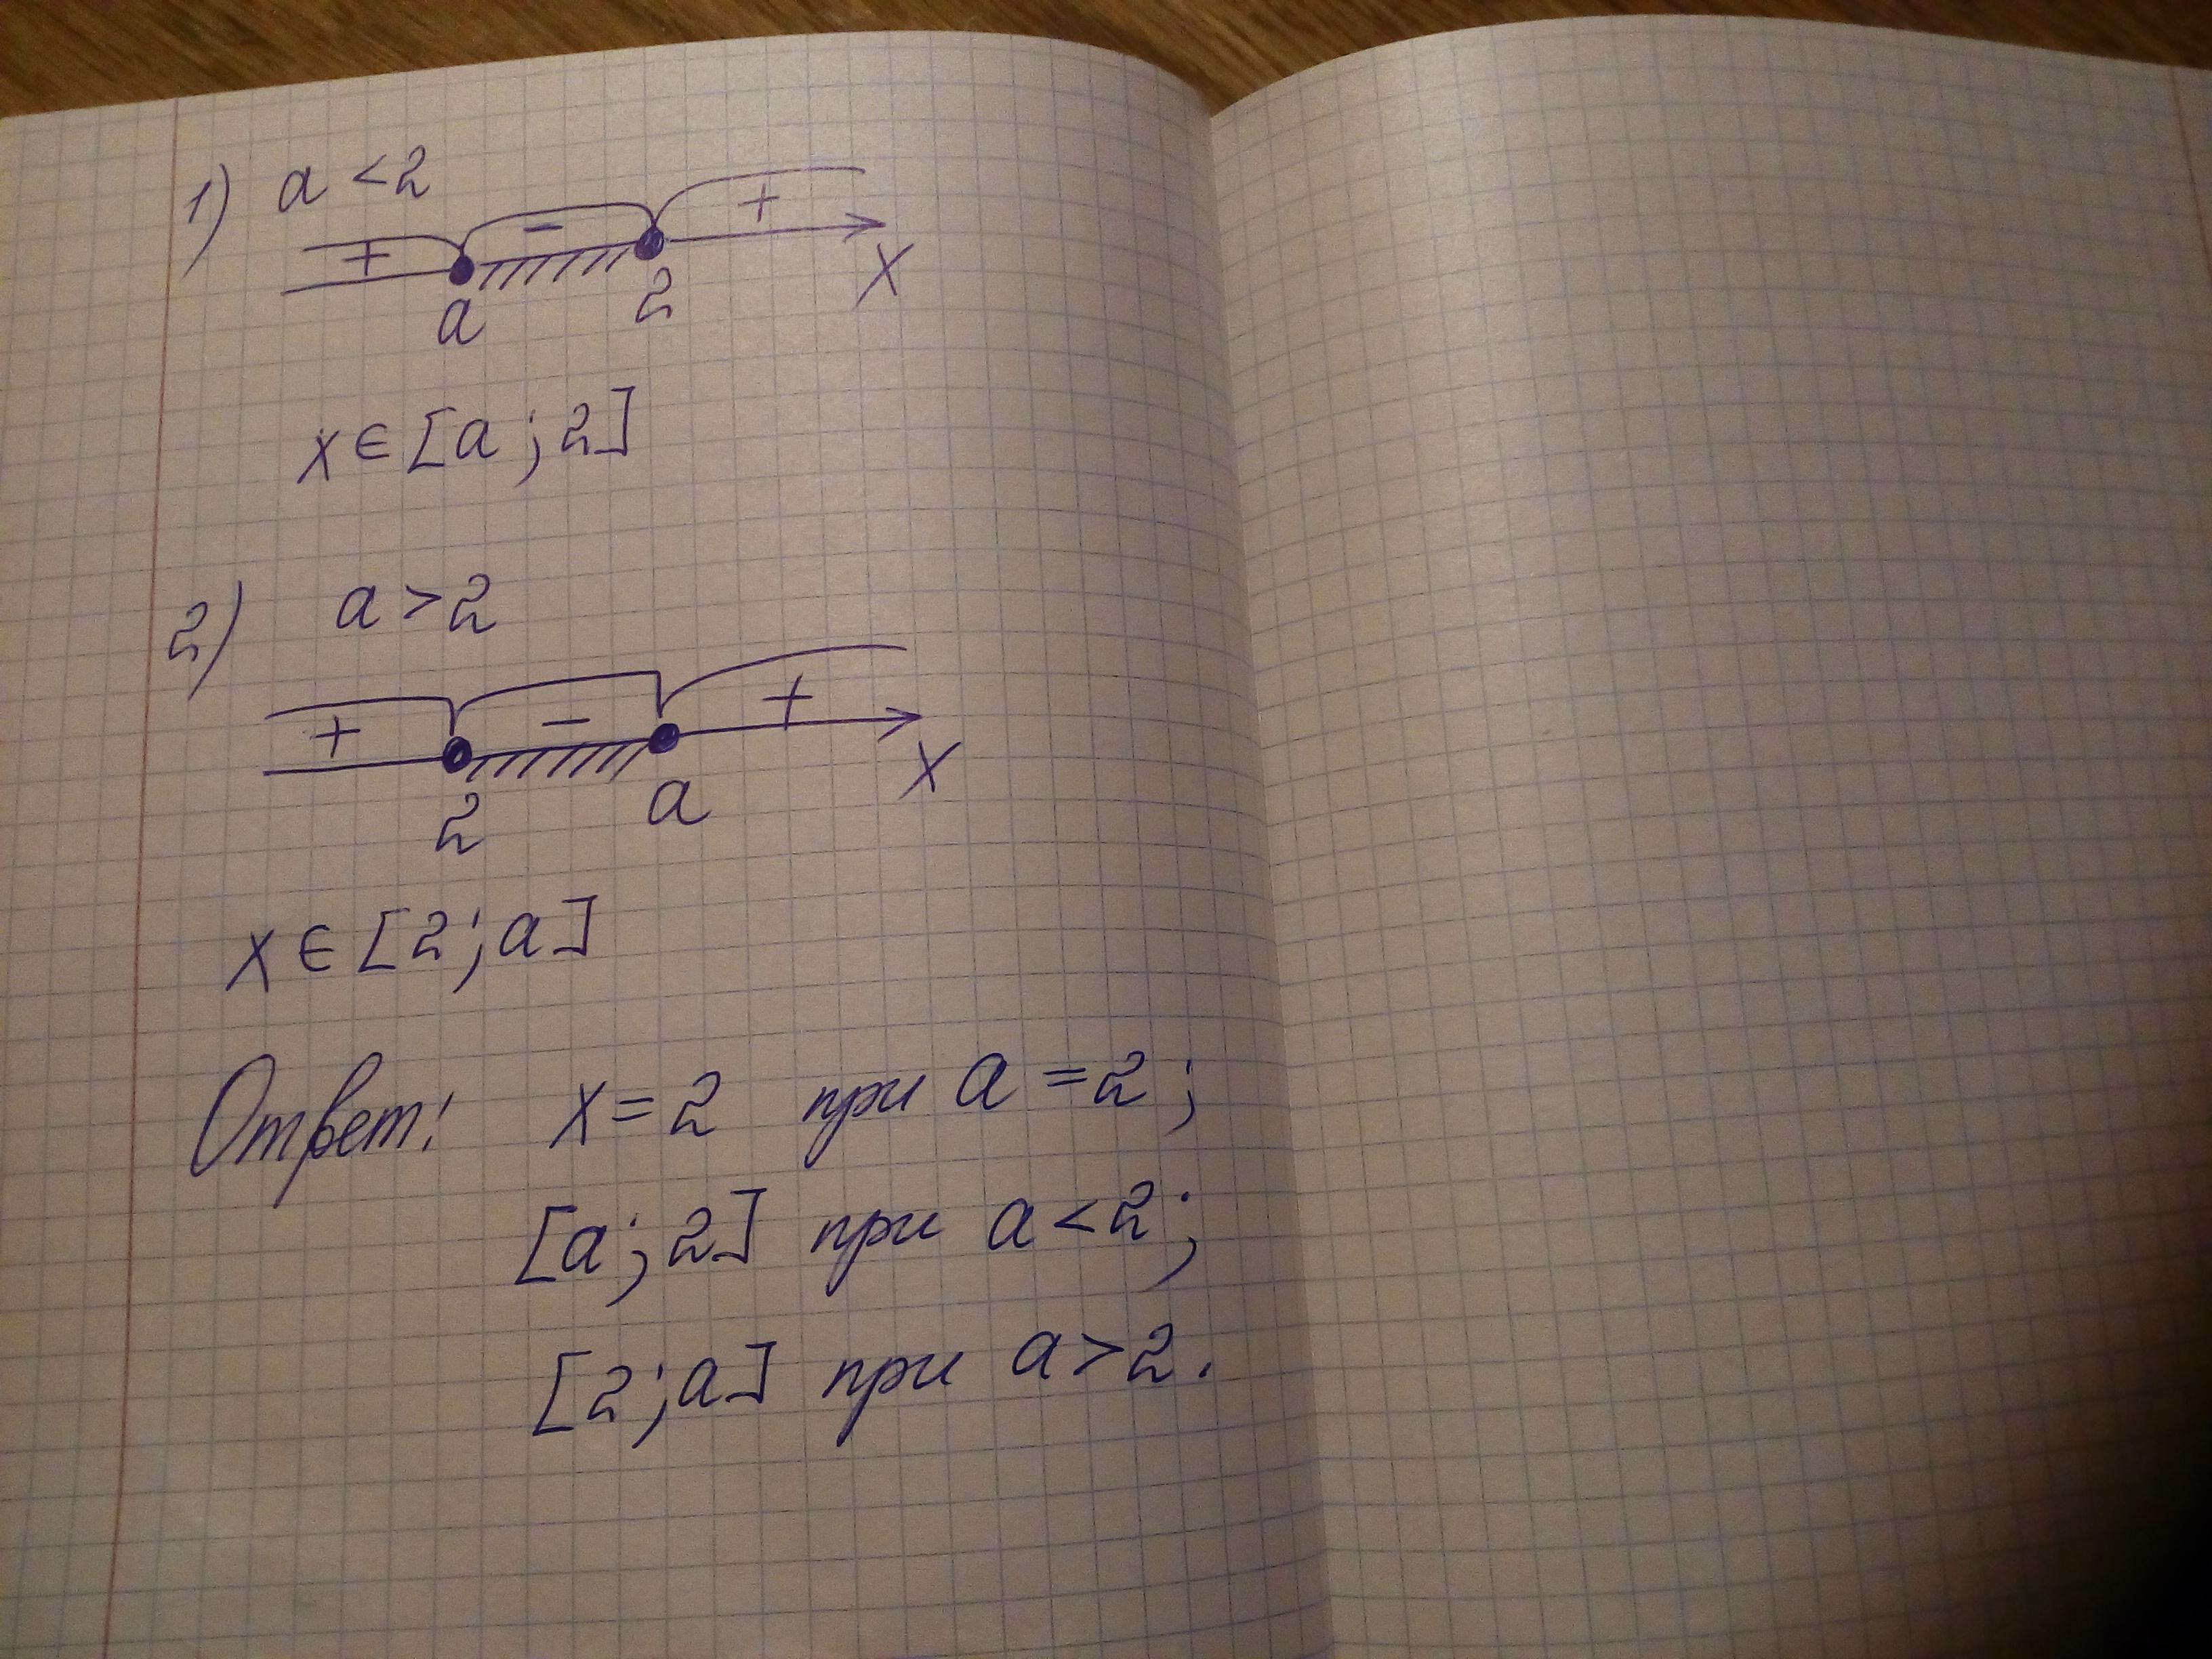 1) a < 2
+ − + 
a 2 x
x ∈ [a ; 2]
2) a > 2
+ − +
2 a x
x ∈ [2 ; a]
Ответ: x = 2 при a = 2 ;
[a ; 2] при a < 2 ;
[2 ; a] при a > 2 .